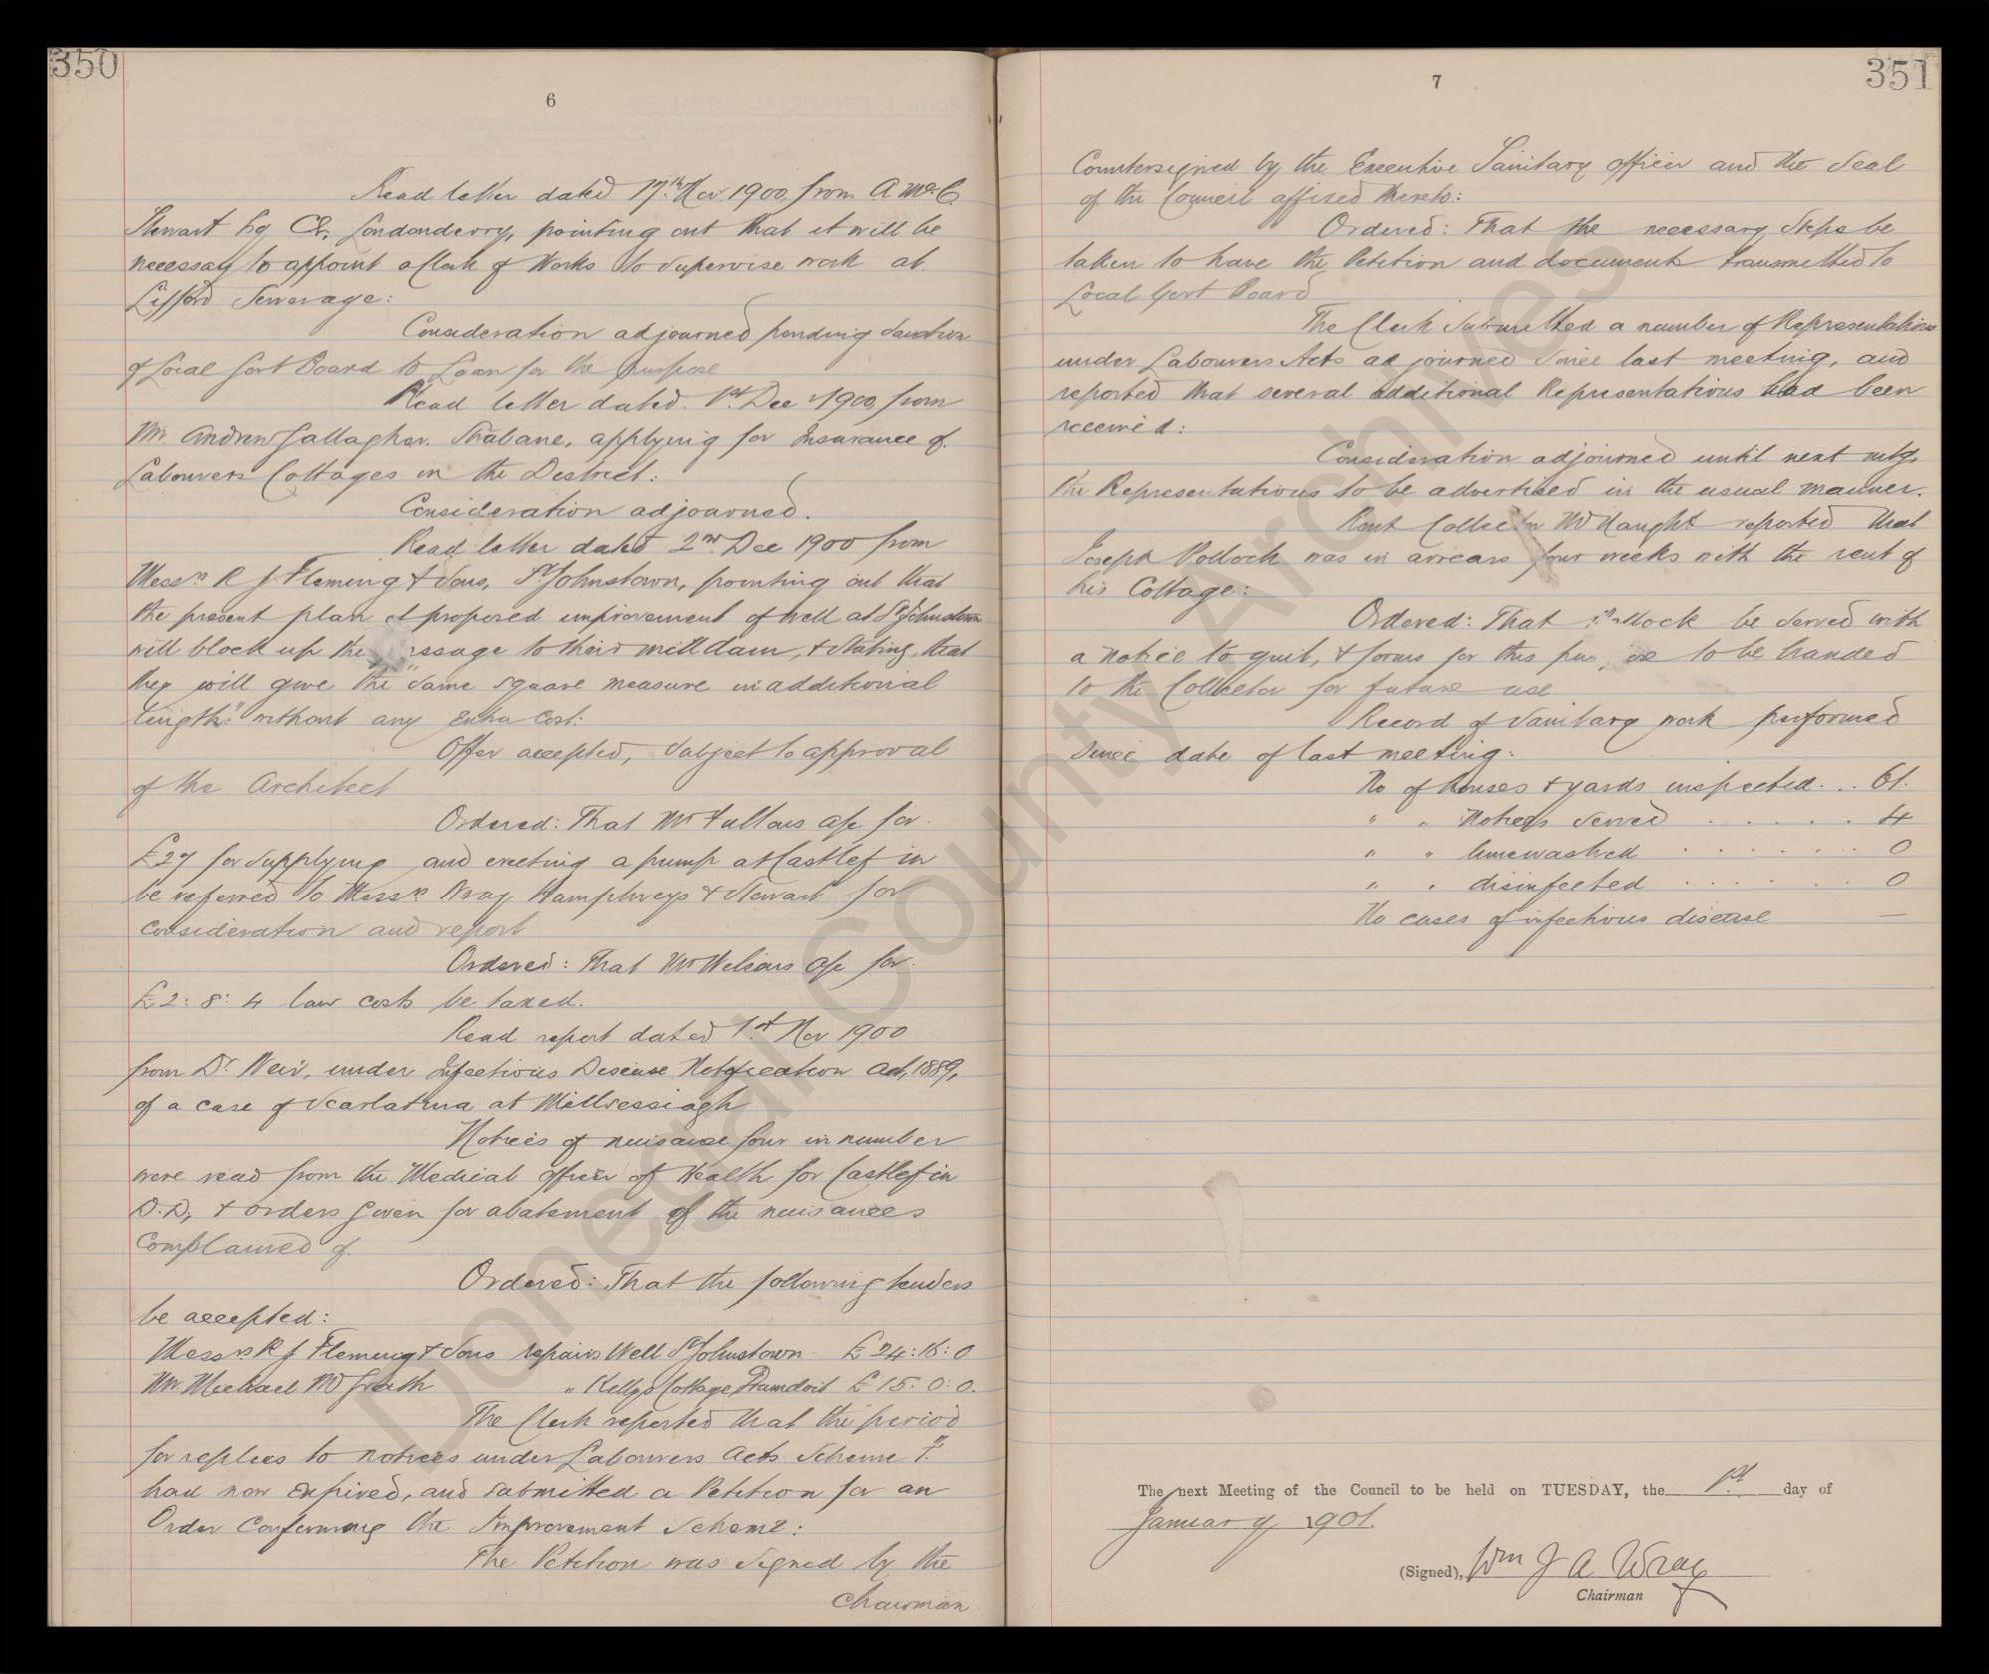 350
6
Read letter dated 17th Nov 1900 from A McC.
Stewart Esq CE, Londonderry, pointing out that it will be
necessary to appoint a Clerk of Works to supervise work at
Lifford Sewerage:
Consideration adjourned pending sanction
of Local Govt Board to Loan for the purpose
Read letter dated 1st Dec 1900, from
Mr. Andrew Gallagher. Strabane, applying for Insurance of
Labourers Cottages in the District:
Consideration adjourned.
Read letter dated 2nd Dec 1900 from
Messrs R J Fleming & Sons, St Johnstown, pointing out that
the present plan of proposed improvement of well at St Johnstown
will block up the ssage to their mill dam, & stating, that
they will give the "same square measure in additional
length" without any Extra Cost:
Offer accepted, subject to approval
of the Architect
Ordered: That Mr for
£27 for supplying and erecting a pump at Castlefin
be referred to Messrs Wray Humphreys & Stewart for
consideration and report
Ordered: That Mr Wilsons for
£2: 8: 4 law costs be taxed.
Read report dated 1st Nov 1900
from Dr Weir, under Infectious Disease Notification Act, 1889,
of a case of Scarlatina at Millsessiagh
Notices of nuisance four in number
were read from the Medical Officer of Health for Castlefin
D.D, & orders given for abatement of the nuisances
complained of.
Ordered: That the following tenders
be accepted:
Messrs R J Fleming & Sons repairs Well St Johnstown £24:16:0
Mr. Michael McGrath " Kellys Cottage £15:0:0.
The Clerk reported that the period
for replies to notices under Labourers Acts Scheme
had now Expired, and submitted a Petition for an
Order Confirming the Improvement Scheme:
The Petition was signed by the
Chairman
351
7
Countersigned by the Executive Sanitary Officer and the Seal
of the Council affixed thereto:
Ordered: That the necessary Steps be
taken to have the Petition and documents transmitted to
Local Govt Board
The Clerk Submitted a number of Representations
under Labourers Acts adjourned since last meeting, and
reported that several additional Representations had been
received:
Consideration adjourned until next mtg.
the Representations to be advertised in the usual manner.
Rent Collector McNaught reported that
Joseph Pollock was in arrears four weeks with the rent of
his Cottage:
Ordered: That Pollock be served with
a notice to quit, & forms for this pu se to be handed
to the Collector for future use
Record of Sanitary work performed
since date of last meeting:
No of houses & yards inspected ... 61.
" " Notices served ..... 4
" " limewashed ...... 0
" " disinfected ..... 0
No cases of infectious disease —
The next Meeting of the Council to be held on TUESDAY, the 1st day of
January 1901.
(Signed), Wm J A Wray
Chairman
Donegal County Archives